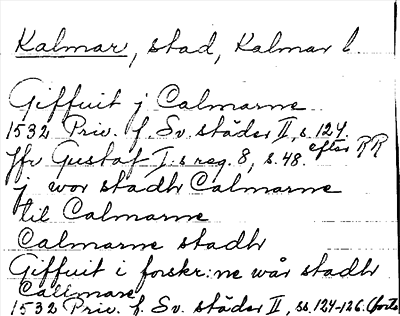 Kalmar, stad, Kalmar l.
Giffuit j Calmarne
1532 Priv. f. Sv. städer II, s. 124.
jfr Gustaf I:s reg. 8, s. 48. efter RR
j wor stadh Calmarne
til Calmarne
Calmarne stadh
Giffuit i forskr:ne wår stadh
Callmarne
1532 Priv. f. Sv. städer II, ss. 124-126. (forts